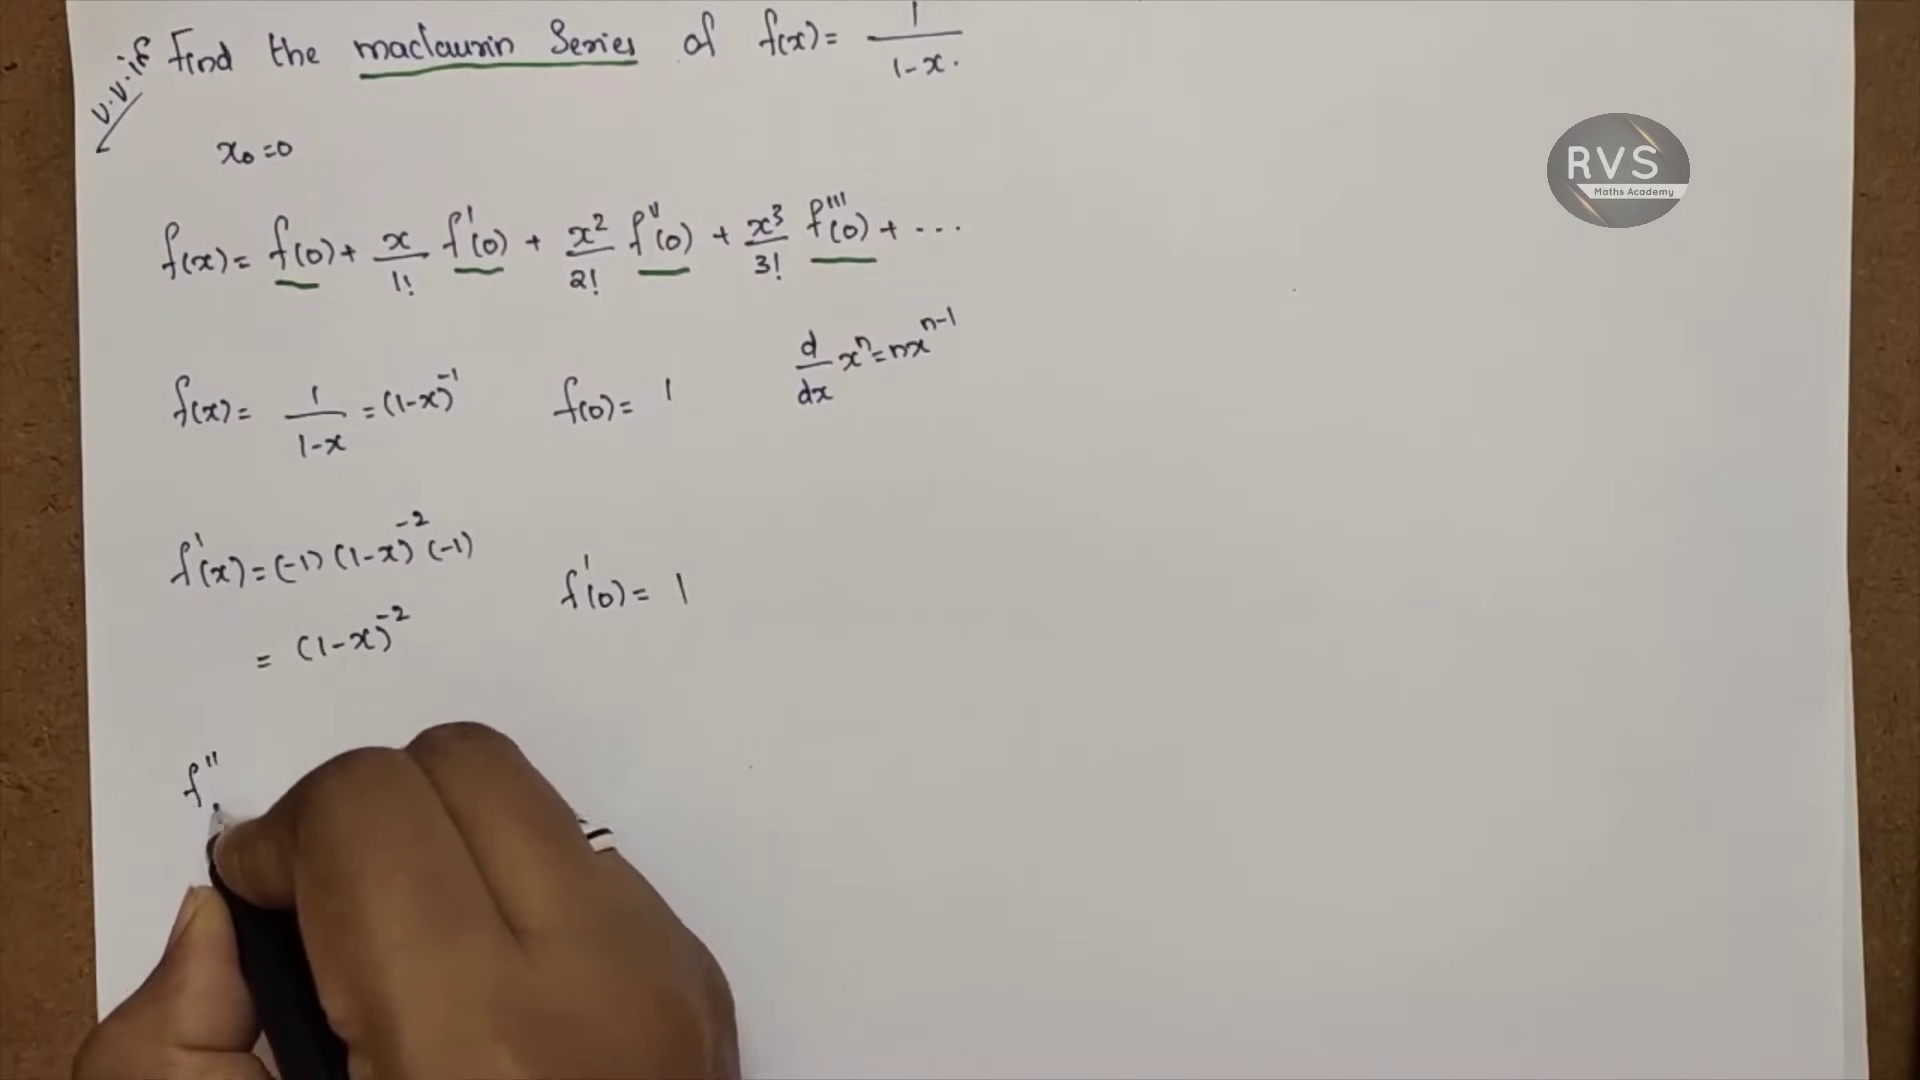 v.v.if Find the maclaurin Series of f(x)= 1/1-x.
x₀=0
f(x)= f(0)+ x/1! f'(0) + x²/2! f''(0) + x³/3! f'''(0) + ...
d/dx xⁿ=nxⁿ⁻¹
f(x)= 1/1-x =(1-x)⁻¹ f(0)= 1
f'(x)=(-1)(1-x)⁻²(-1)
f'(0)= 1
= (1-x)⁻²
f''
RVS
Maths Academy